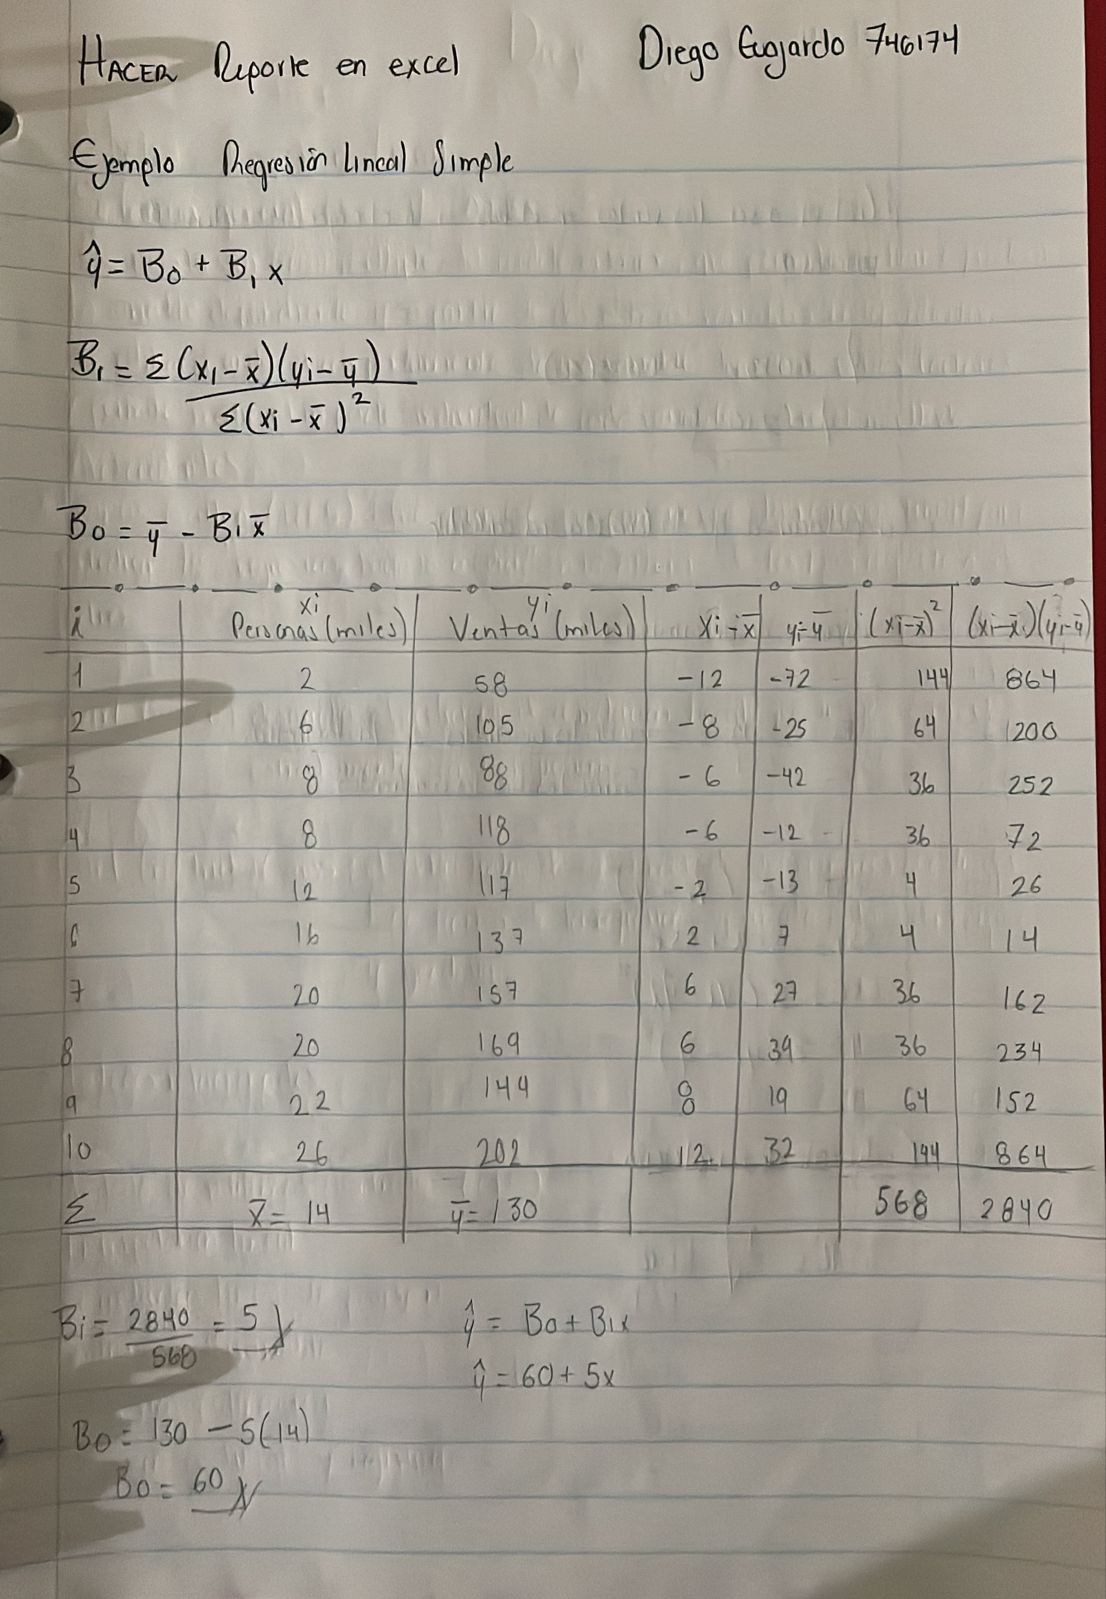 HACER Reporte en excel Diego Guajardo 746174
Ejemplo Regresión Lineal Simple
ŷ = B0 + B1 x
B1 = Σ(x1 - x̄)(yi - ȳ)
Σ(xi - x̄)²
B0 = ȳ - B1 x̄
i xi Personas (miles) yi Ventas (miles) xi - x̄ yi - ȳ (xi - x̄)² (xi - x̄)(yi - ȳ)
1 2 58 -12 -72 144 864
2 6 105 -8 -25 64 200
3 8 88 -6 -42 36 252
4 8 118 -6 -12 36 72
5 12 117 -2 -13 4 26
6 16 137 2 7 4 14
7 20 157 6 27 36 162
8 20 169 6 39 36 234
9 22 144 8 19 64 152
10 26 202 12 32 144 864
Σ x̄ = 14 ȳ = 130 568 2840
Bi = 2840/568 = 5 ŷ = B0 + B1x
ŷ = 60 + 5x
B0 = 130 - 5(14)
B0 = 60